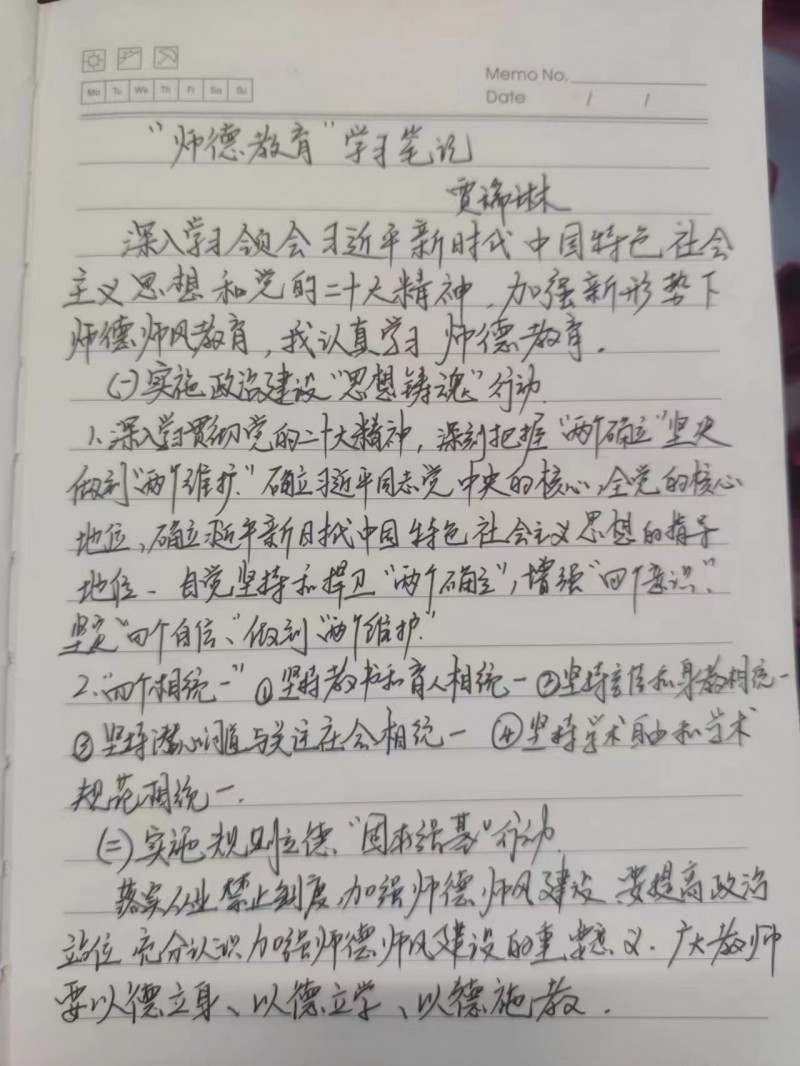 Memo No.
Mo Tu We Th Fr Sa Su
Date / /
"师德教育"学习笔记
贾稀琳
深入学习领会习近平新时代中国特色社会
主义思想和党的二十大精神、加强新形势下
师德师风教育,我认真学习师德教育.
(一)实施政治建设"思想铸魂"行动.
1.深入学习贯彻党的二十大精神,深刻把握"两个确立"坚决
做到"两个维护."确立习近平同志党中央的核心、全党的核心
地位,确立习近平新时代中国特色社会主义思想的指导
地位、自觉坚持和捍卫"两个确立",增强"四个意识"、
坚定"四个自信"、做到"两个维护."
2."四个相统一"①坚持教书和育人相统一②坚持言传和身教相统一
③坚持潜心问道与关注社会相统一 ④坚持学术自由和学术
规范相统一.
(二)实施规则立德"固本强基"行动.
落实从业禁止制度,加强师德师风建设、要提高政治
站位充分认识加强师德师风建设的重要意义.广大教师
要以德立身、以德立学、以德施教.